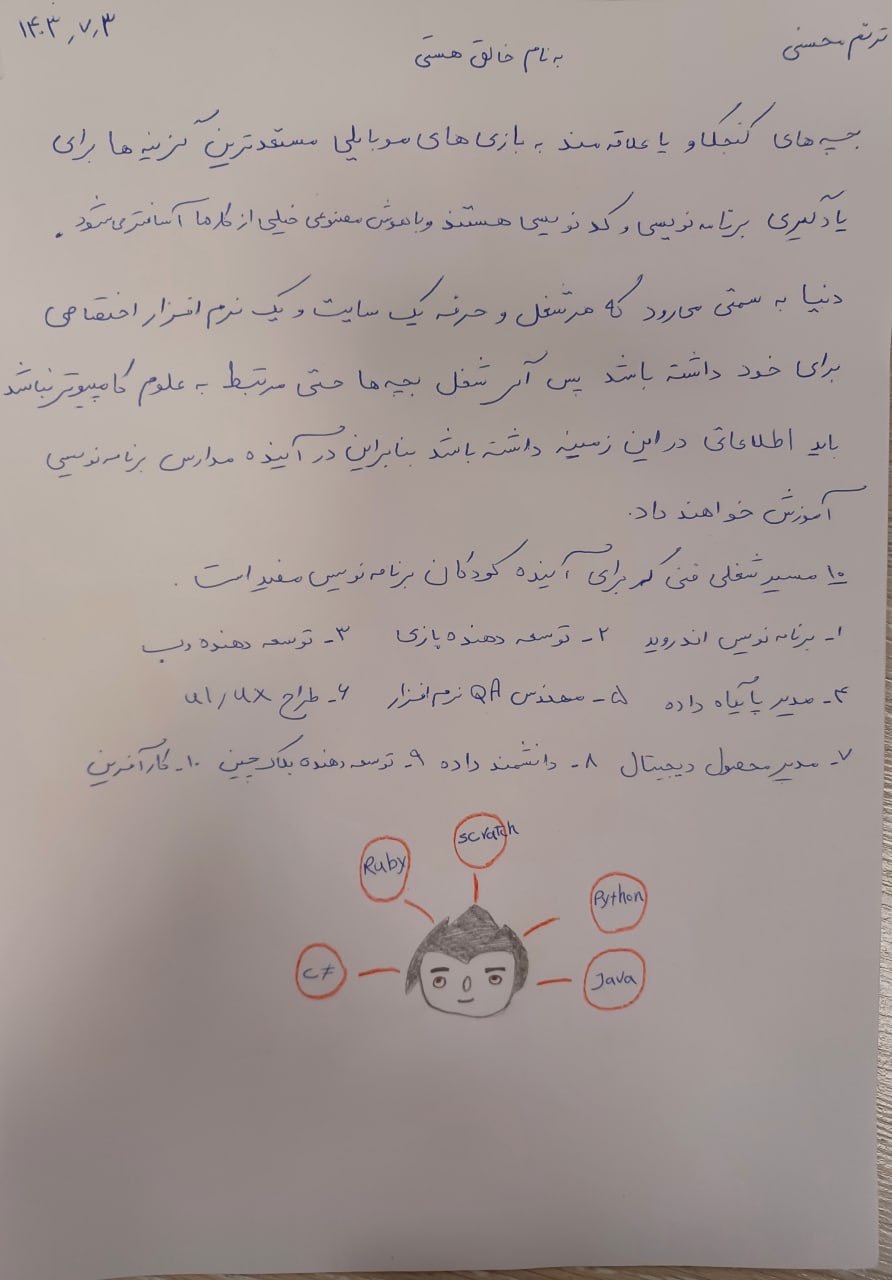 ترنم محسنی
۱۴۰۳٫۷٫۳
به نام خالق هستی
بچه های کنجکاو یا علاقه مند به بازی های موبایلی مستعدترین گزینه ها برای
یادگیری برنامه نویسی و کد نویسی هستند و با هوش مصنوعی خیلی از کارها آسانتر می شود.
دنیا به سمتی می رود که هر شغل و حرفه یک سایت و یک نرم افزار اختصاصی
برای خود داشته باشد پس اگر شغل بچه ها حتی مرتبط به علوم کامپیوتر نباشد
باید اطلاعاتی در این زمینه داشته باشد بنابراین در آینده مدارس برنامه نویسی
آموزش خواهند داد.
۱۰ مسیر شغلی فنی که برای آینده کودکان برنامه نویس مفید است.
۱- برنامه نویس اندروید ۲- توسعه دهنده بازی ۳- توسعه دهنده وب
۴- مدیر پایگاه داده ۵- مهندس QA نرم افزار ۶- طراح UI/UX
۷- مدیر محصول دیجیتال ۸- دانشمند داده ۹- توسعه دهنده بلاک چین ۱۰- کارآفرین
scratch
Ruby
Python
C#
Java